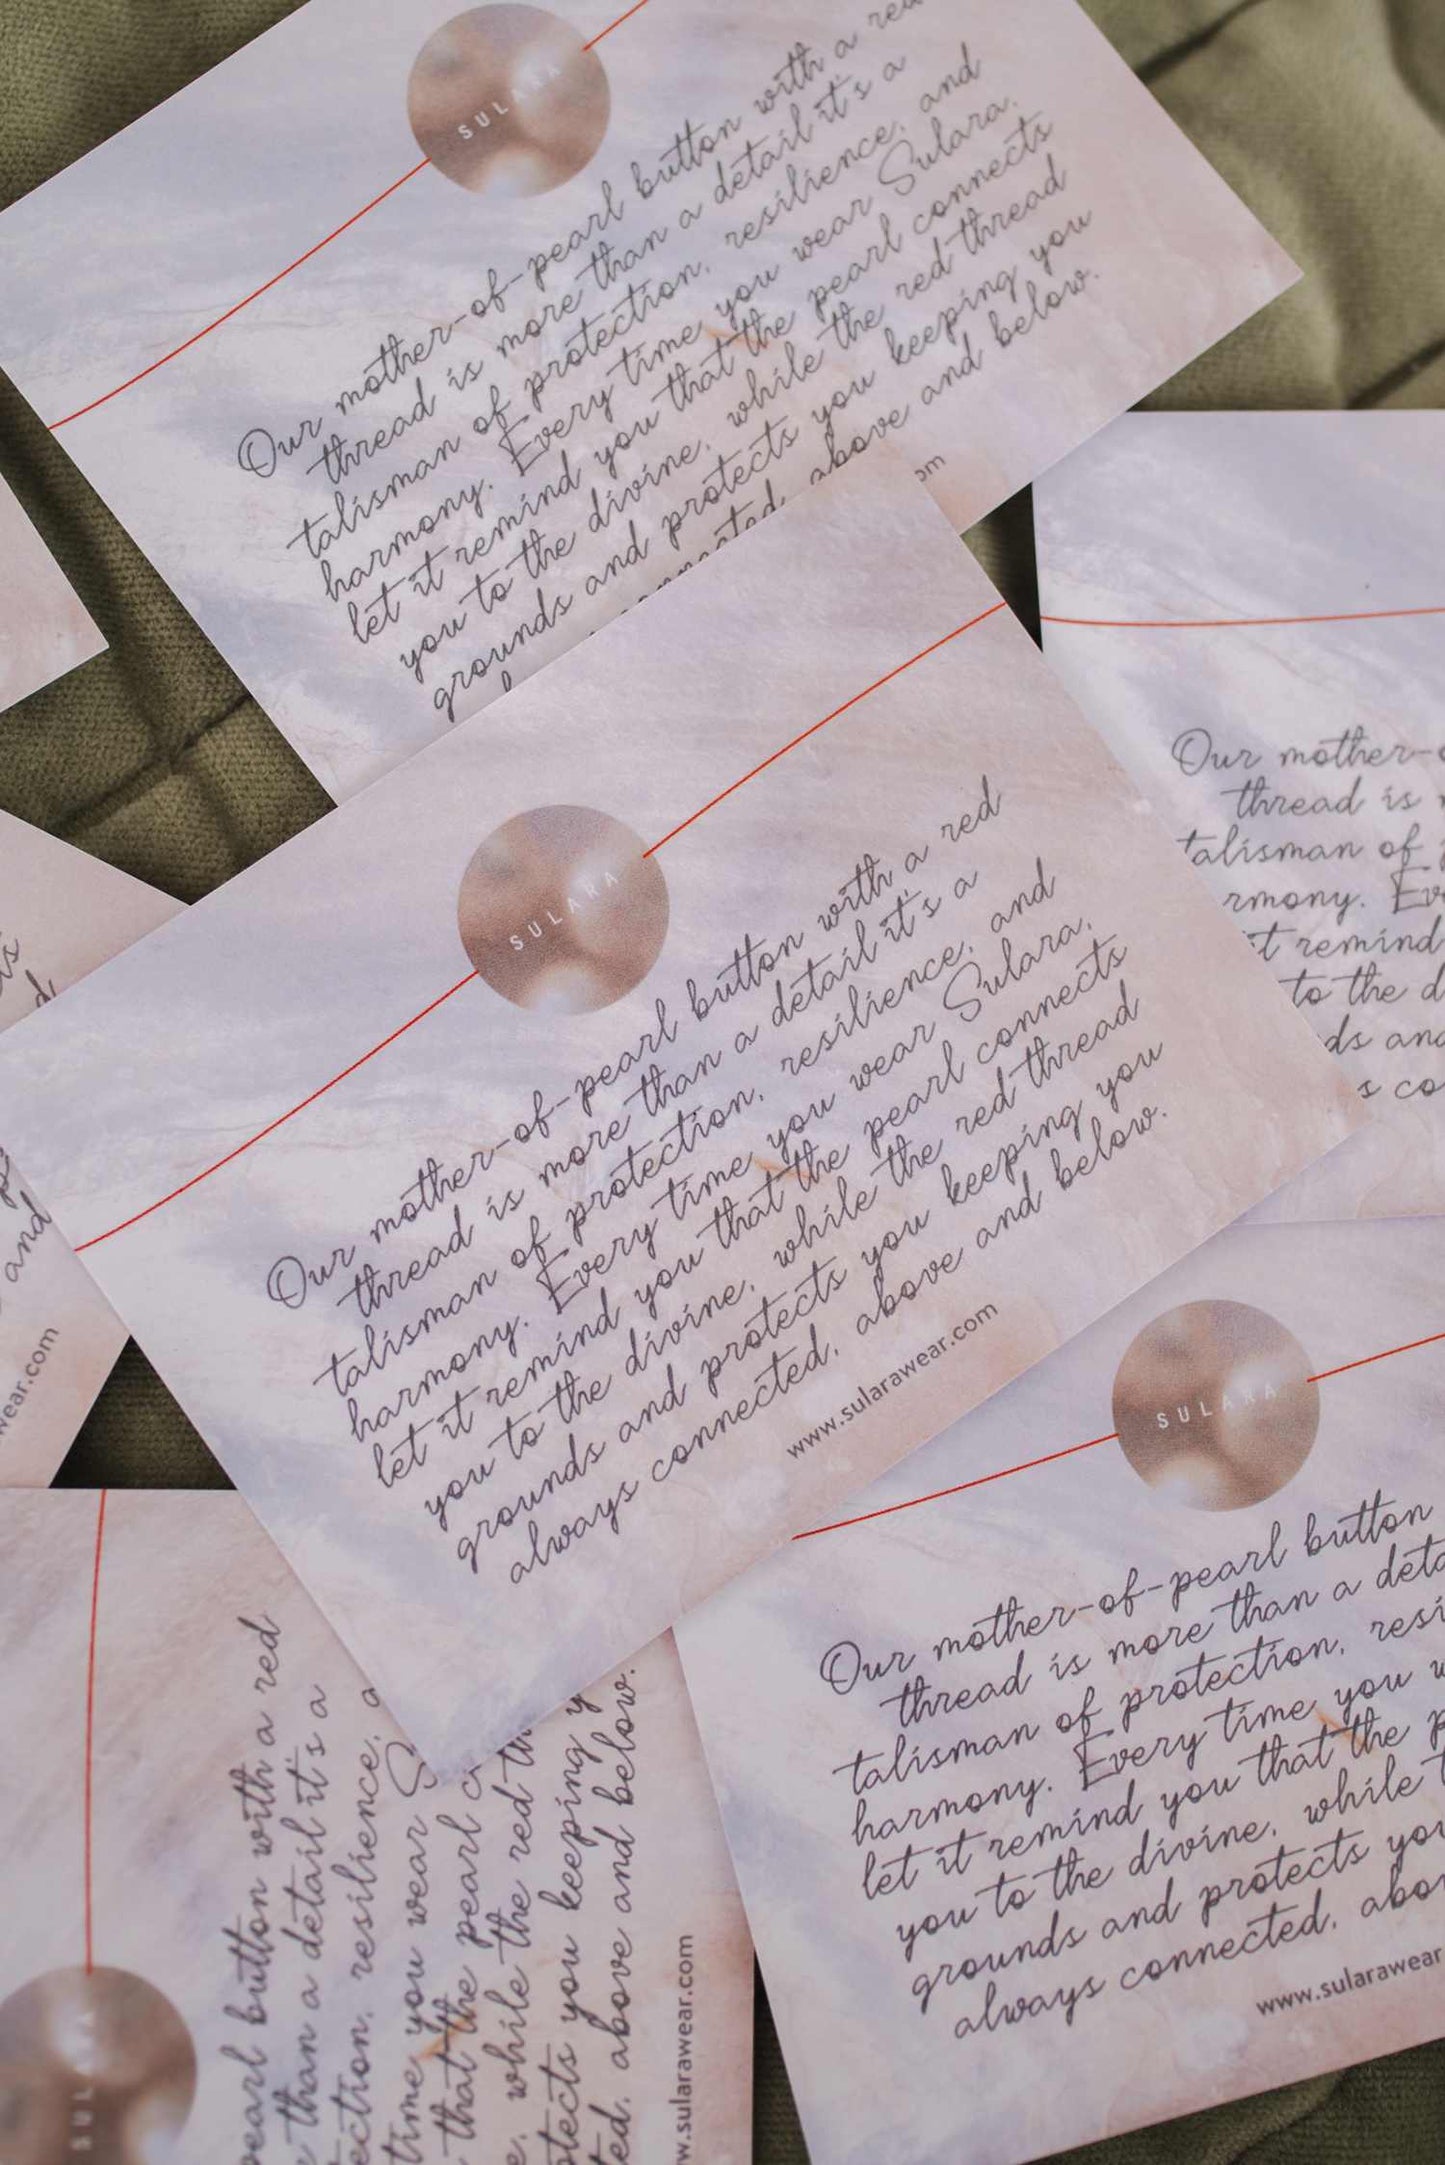 SULARA
Our mother-of-pearl button with a red
thread is more than a detail it's a
talisman of protection, resilience, and
harmony. Every time you wear Sulara,
let it remind you that the pearl connects
you to the divine, while the red thread
grounds and protects you keeping you
above and below.
om
SULARA
Our mother-of-pearl button with a red
thread is more than a detail it's a
talisman of protection, resilience, and
harmony. Every time you wear Sulara,
let it remind you that the pearl connects
you to the divine, while the red thread
grounds and protects you keeping you
always connected, above and below.
www.sularawear.com
Our mother-
thread is
talisman of
rmony.
it remind
to the
ds and
s co
and
wear.com
SULARA
Our mother-of-pearl button
thread is more than a deta
talisman of protection, resi
harmony. Every time you w
let it remind you that the p
you to the divine, while t
grounds and protects you
always connected, abo
www.sularawear
SULARA
pearl button with a red
than a detail it's a
ection, resilience, a
time you wear S
that the pearl c
, while the red th
otects you keeping y
ted, above and below.
w.sularawear.com